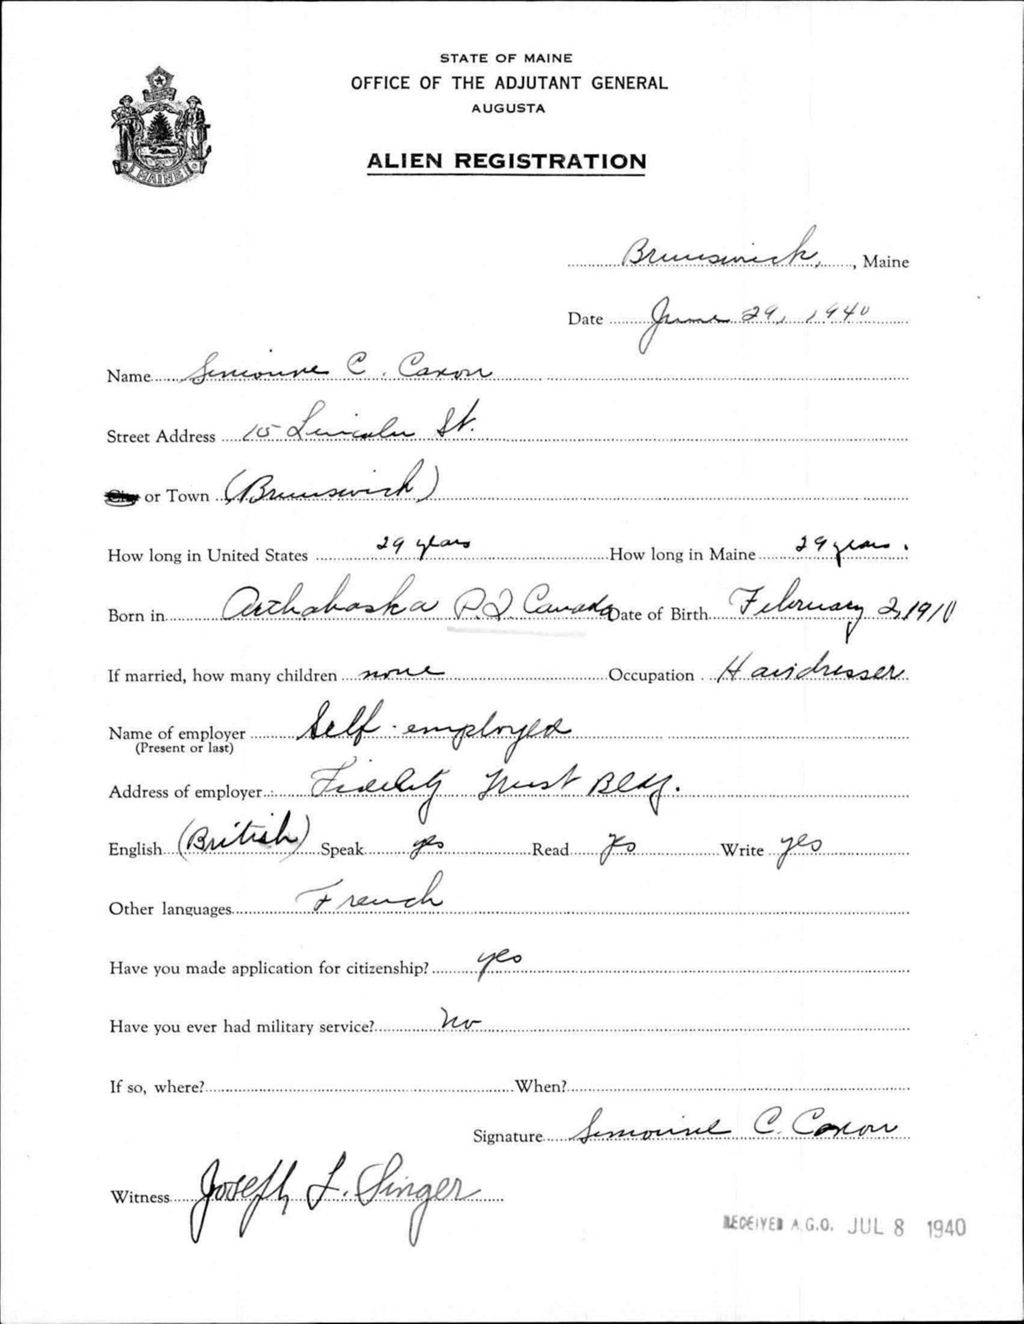 STATE OF MAINE
OFFICE OF THE ADJUTANT GENERAL
AUGUSTA
ALIEN REGISTRATION
MAINE
Brunswick, , Maine
Date June 29, 1940
Name Simonne C. Caron
Street Address 15 Lincoln St.
City or Town (Brunswick)
How long in United States 29 years How long in Maine 29 years.
Born in Arthabaska P.Q. Canada Date of Birth February 2, 1910
If married, how many children none Occupation Hairdresser
Name of employer Self-employed
(Present or last)
Address of employer Fidelity Trust Bldg.
English (British) Speak yes Read Yes Write yes
Other languages French
Have you made application for citizenship? yes
Have you ever had military service? No
If so, where? When?
Signature Simonne C. Caron
Witness Joseph L. Singer
RECEIVED A.G.O. JUL 8 1940